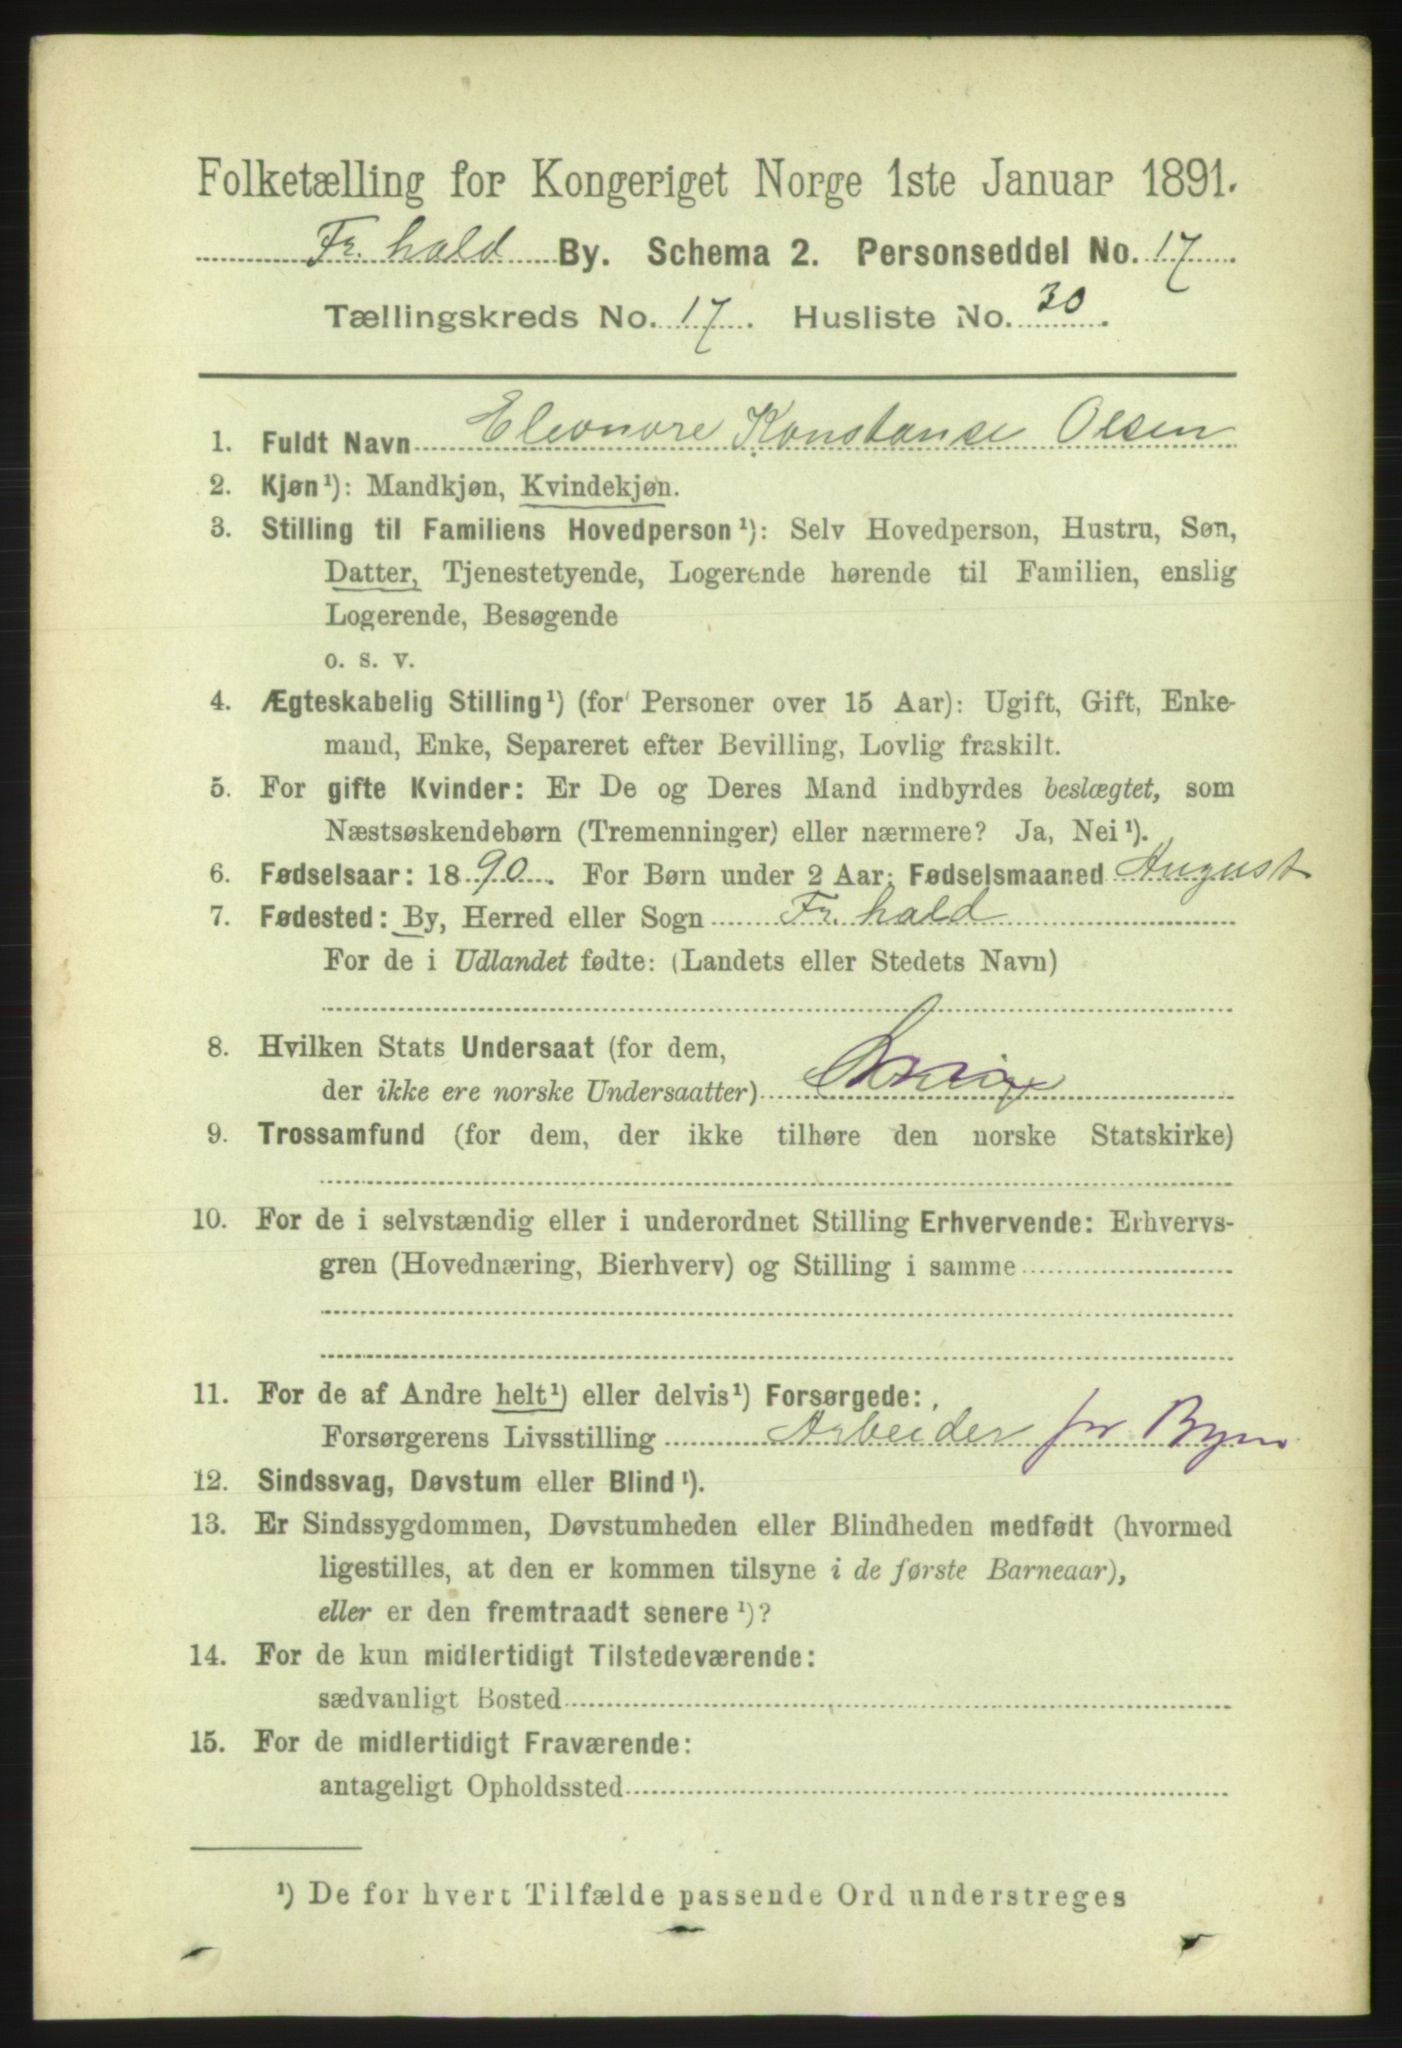 Folketælling for Kongeriget Norge 1ste Januar 1891.
Fr. hald By. Schema 2. Personseddel No. 17
Tællingskreds No. 17. Husliste No. 30.
1. Fuldt Navn Eleonore Konstanse Olsen
2. Kjøn¹): Mandkjøn, Kvindekjøn.
3. Stilling til Familiens Hovedperson¹): Selv Hovedperson, Hustru, Søn,
Datter, Tjenestetyende, Logerende hørende til Familien, enslig
Logerende, Besøgende
o. s. v.
4. Ægteskabelig Stilling¹) (for Personer over 15 Aar): Ugift, Gift, Enke-
mand, Enke, Separeret efter Bevilling, Lovlig fraskilt.
5. For gifte Kvinder: Er De og Deres Mand indbyrdes beslægtet, som
Næstsøskendebørn (Tremenninger) eller nærmere? Ja, Nei¹).
6. Fødselsaar: 1890. For Børn under 2 Aar: Fødselsmaaned August
7. Fødested: By, Herred eller Sogn Fr. hald
For de i Udlandet fødte: (Landets eller Stedets Navn)
8. Hvilken Stats Undersaat (for dem,
der ikke ere norske Undersaatter)
9. Trossamfund (for dem, der ikke tilhøre den norske Statskirke)
10. For de i selvstændig eller i underordnet Stilling Erhvervende: Erhvervs-
gren (Hovednæring, Bierhverv) og Stilling i samme
11. For de af Andre helt¹) eller delvis¹) Forsørgede:
Forsørgerens Livsstilling Arbeider for Byen
12. Sindssvag, Døvstum eller Blind¹).
13. Er Sindssygdommen, Døvstumheden eller Blindheden medfødt (hvormed
ligestilles, at den er kommen tilsyne i de første Barneaar),
eller er den fremtraadt senere¹)?
14. For de kun midlertidigt Tilstedeværende:
sædvanligt Bosted
15. For de midlertidigt Fraværende:
antageligt Opholdssted
¹) De for hvert Tilfælde passende Ord understreges